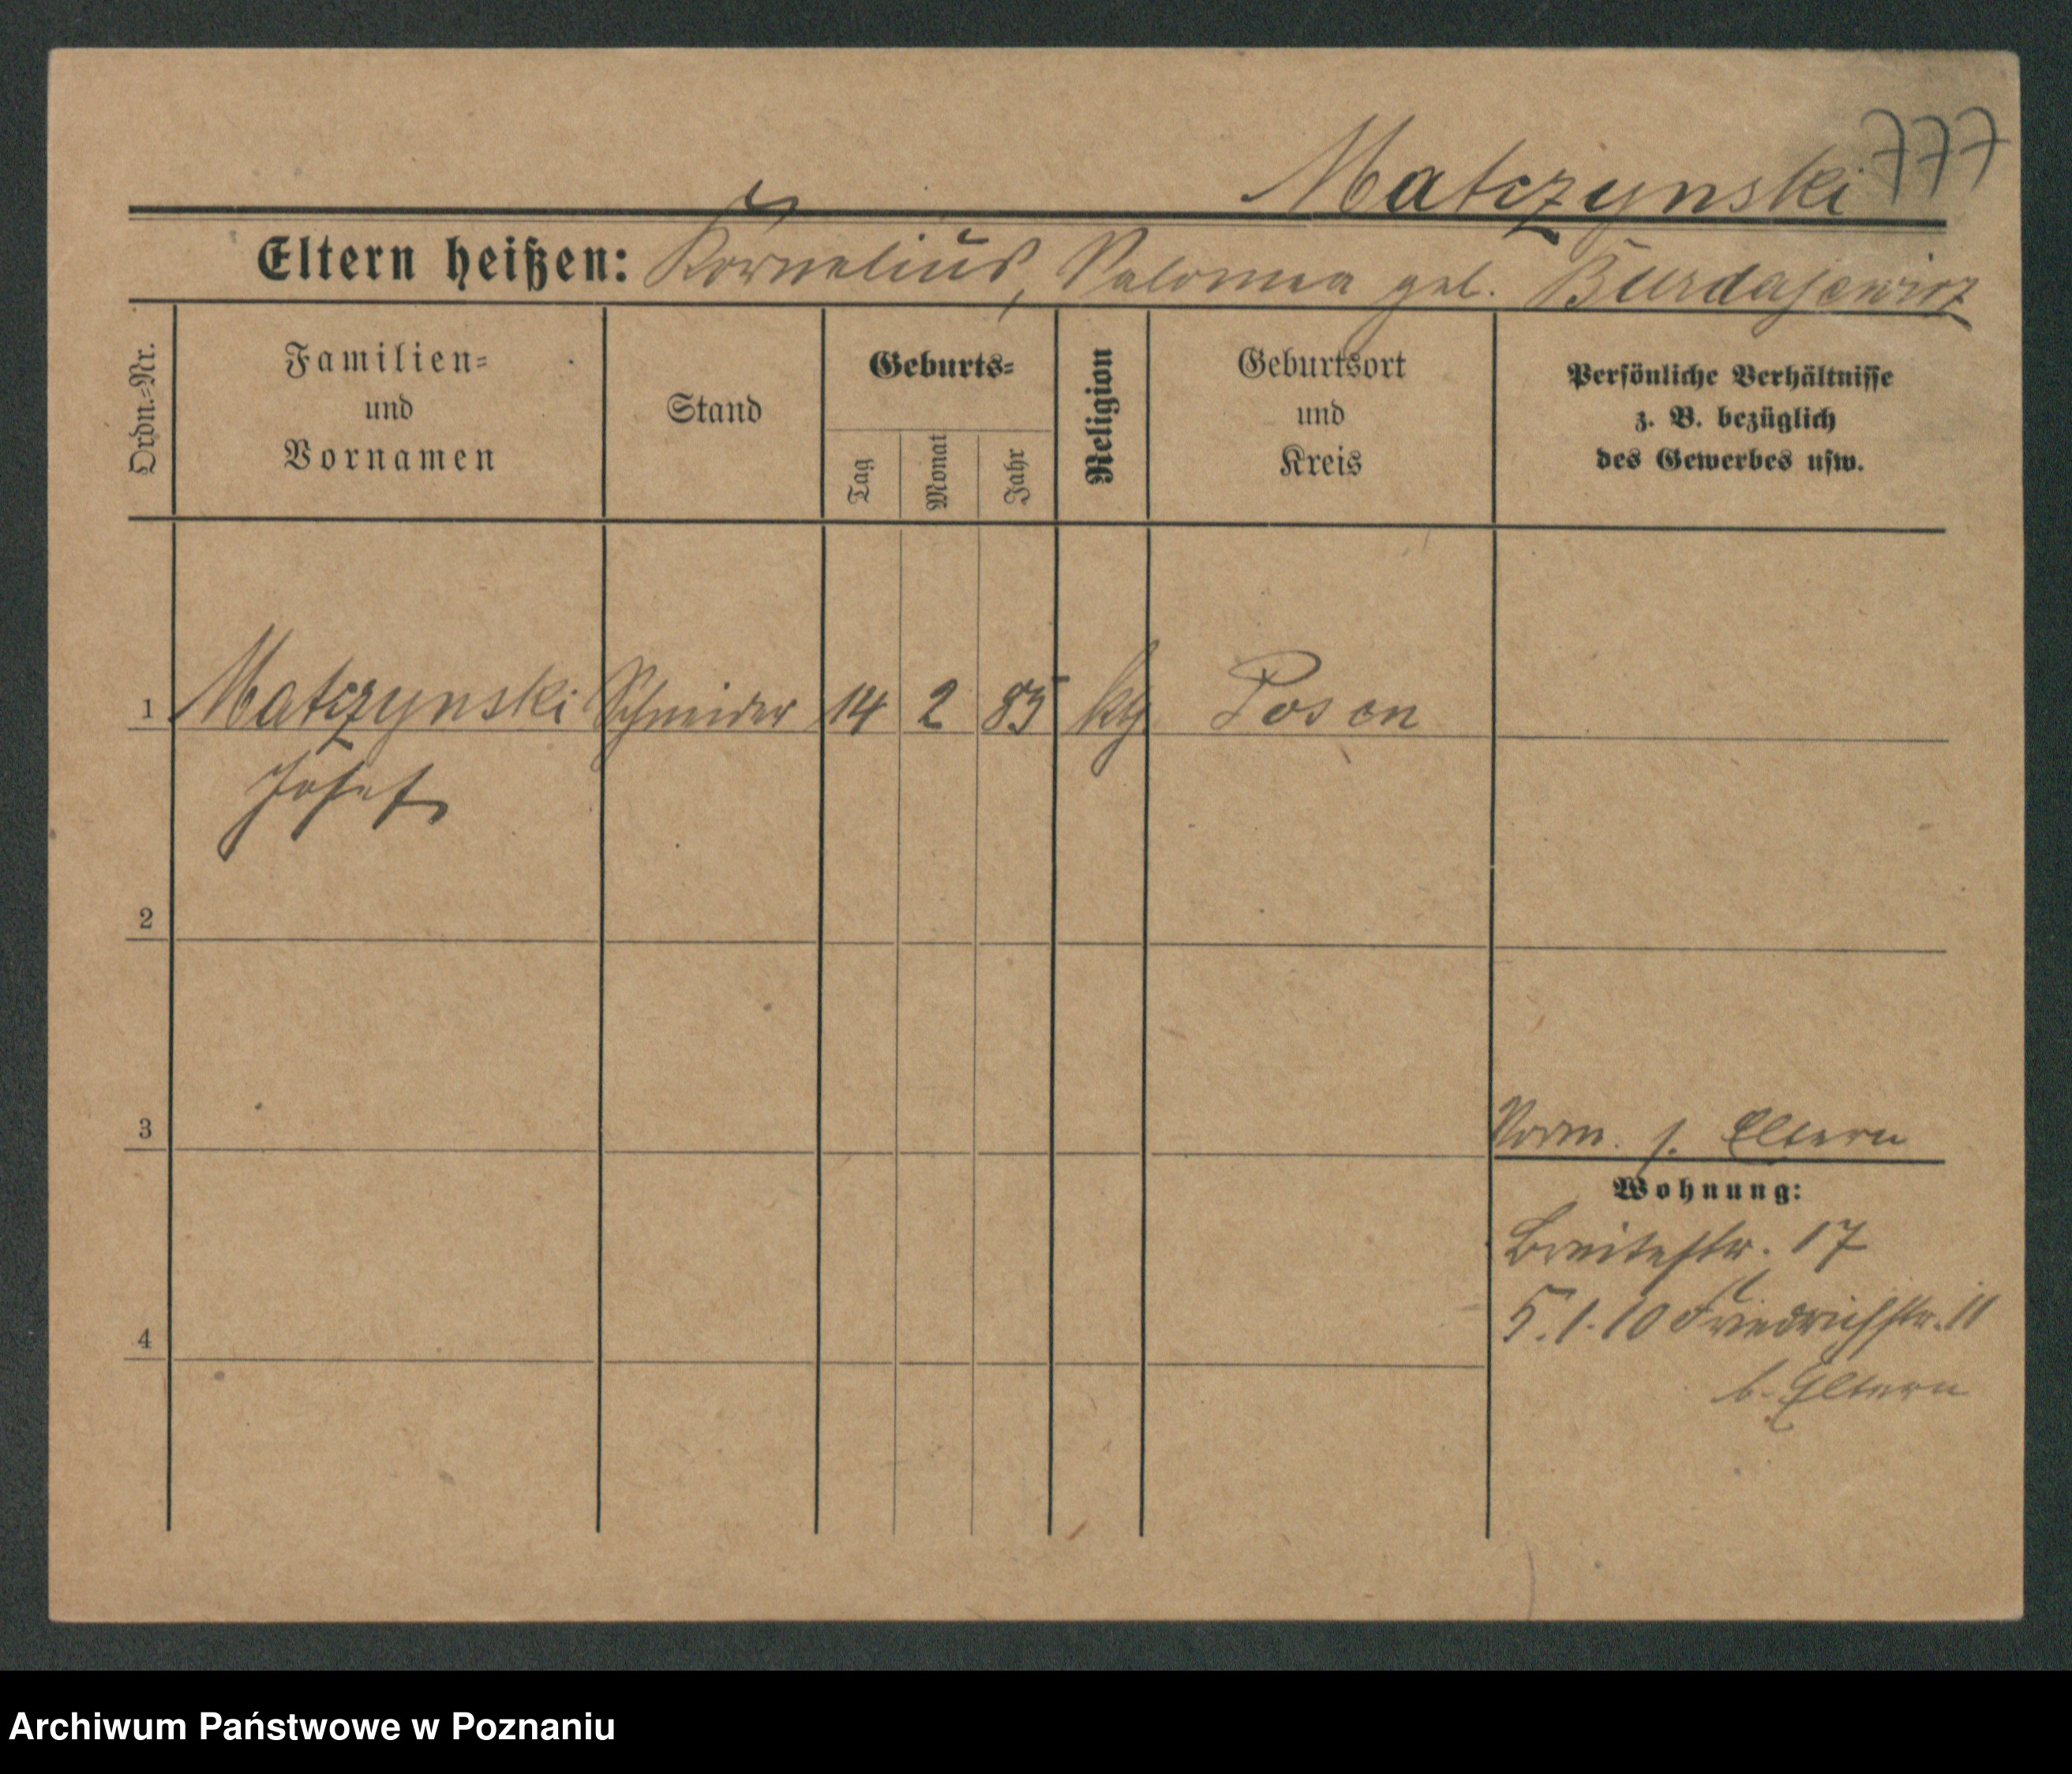 777
Matczynski
Eltern heißen: Kornelius, Salomea geb. Burdajewicz
Ordn.=Nr.
Familien=
und
Vornamen
Stand
Geburts=
Tag
Monat
Jahr
Religion
Geburtsort
und
Kreis
Persönliche Verhältnisse
z. B. bezüglich
des Gewerbes usw.
1 Matczynski Schneider 14 2 85 Posen
Josef
2
3
Vorm. s. Eltern
Wohnung:
Breitestr. 17
4
5.1.10 Friedrichstr. 11
b. Eltern
Archiwum Państwowe w Poznaniu